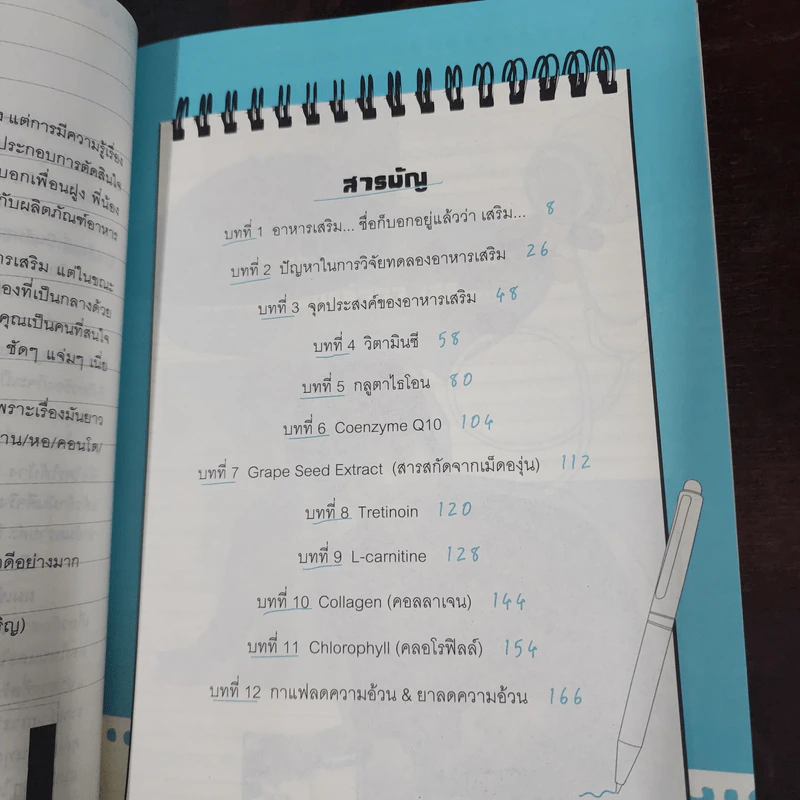 แต่การมีความรู้เรื่อง
ประกอบการตัดสินใจ
บอกเพื่อนฝูง พี่น้อง
กับผลิตภัณฑ์อาหาร
ารเสริม แต่ในขณะ
องที่เป็นกลางด้วย
คุณเป็นคนที่สนใจ
ชัดๆ แจ่มๆ เนี่ย
พราะเรื่องมันยาว
าน/หอ/คอนโด/
ดีอย่างมาก
สารบัญ
บทที่ 1 อาหารเสริม... ชื่อก็บอกอยู่แล้วว่า เสริม... 8
บทที่ 2 ปัญหาในการวิจัยทดลองอาหารเสริม 26
บทที่ 3 จุดประสงค์ของอาหารเสริม 48
บทที่ 4 วิตามินซี 58
บทที่ 5 กลูตาไธโอน 80
บทที่ 6 Coenzyme Q10 104
บทที่ 7 Grape Seed Extract (สารสกัดจากเม็ดองุ่น) 112
บทที่ 8 Tretinoin 120
บทที่ 9 L-carnitine 128
บทที่ 10 Collagen (คอลลาเจน) 144
บทที่ 11 Chlorophyll (คลอโรฟิลล์) 154
บทที่ 12 กาแฟลดความอ้วน & ยาลดความอ้วน 166